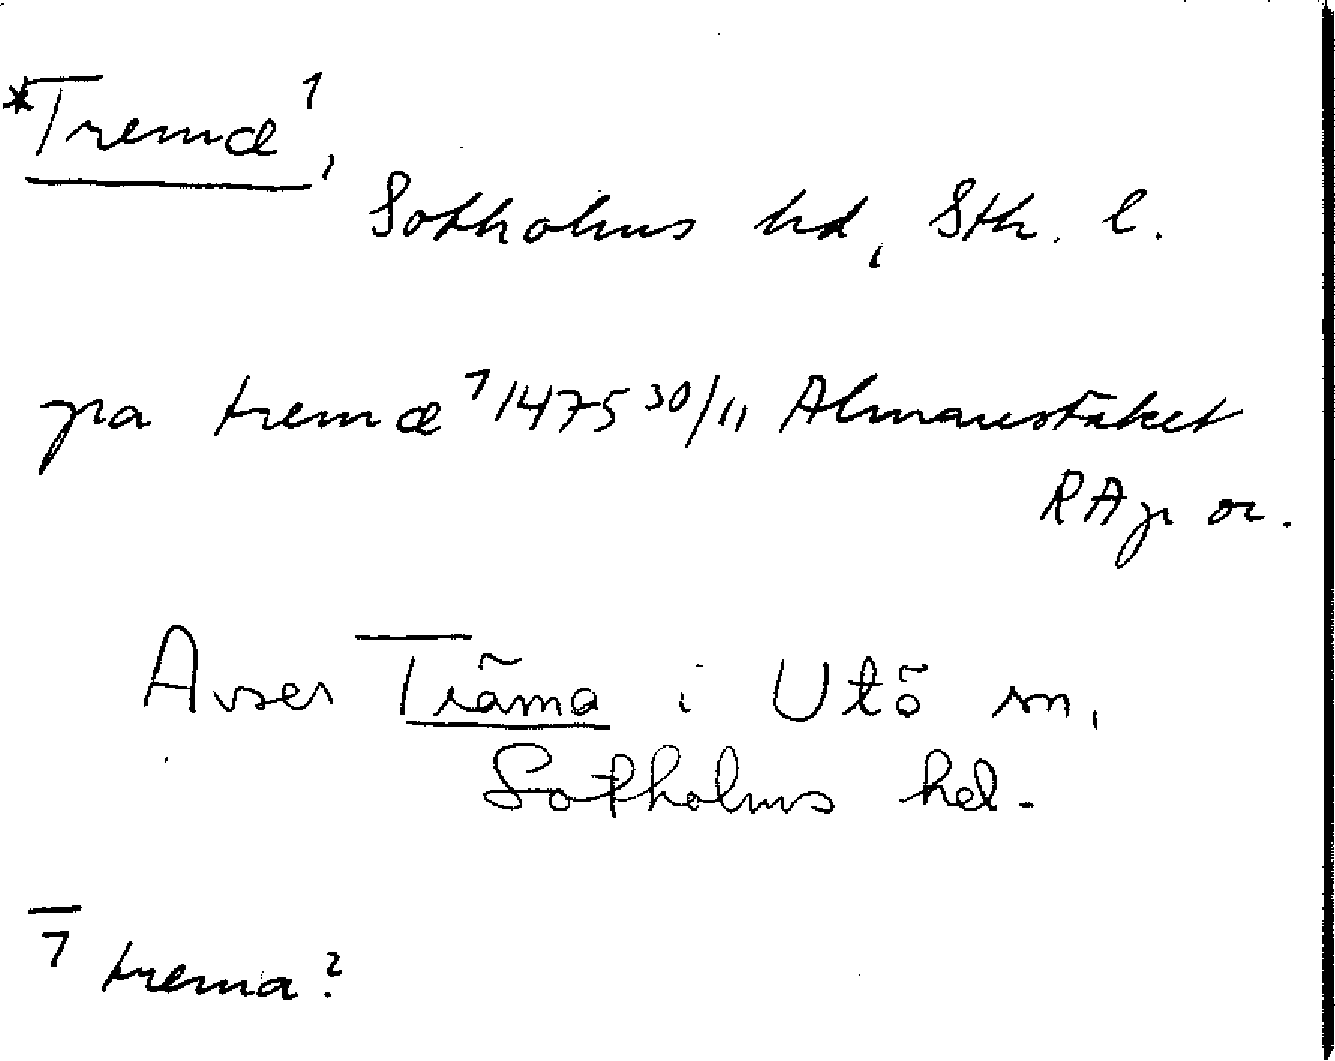 *Tremæ¹,
Sotholms hd, Sth. l.
pa tremæ¹ 1475 30/11 Almarestäket
RAp or.
Avser Träma i Utö sn,
Sotholms hd.
1 trema?